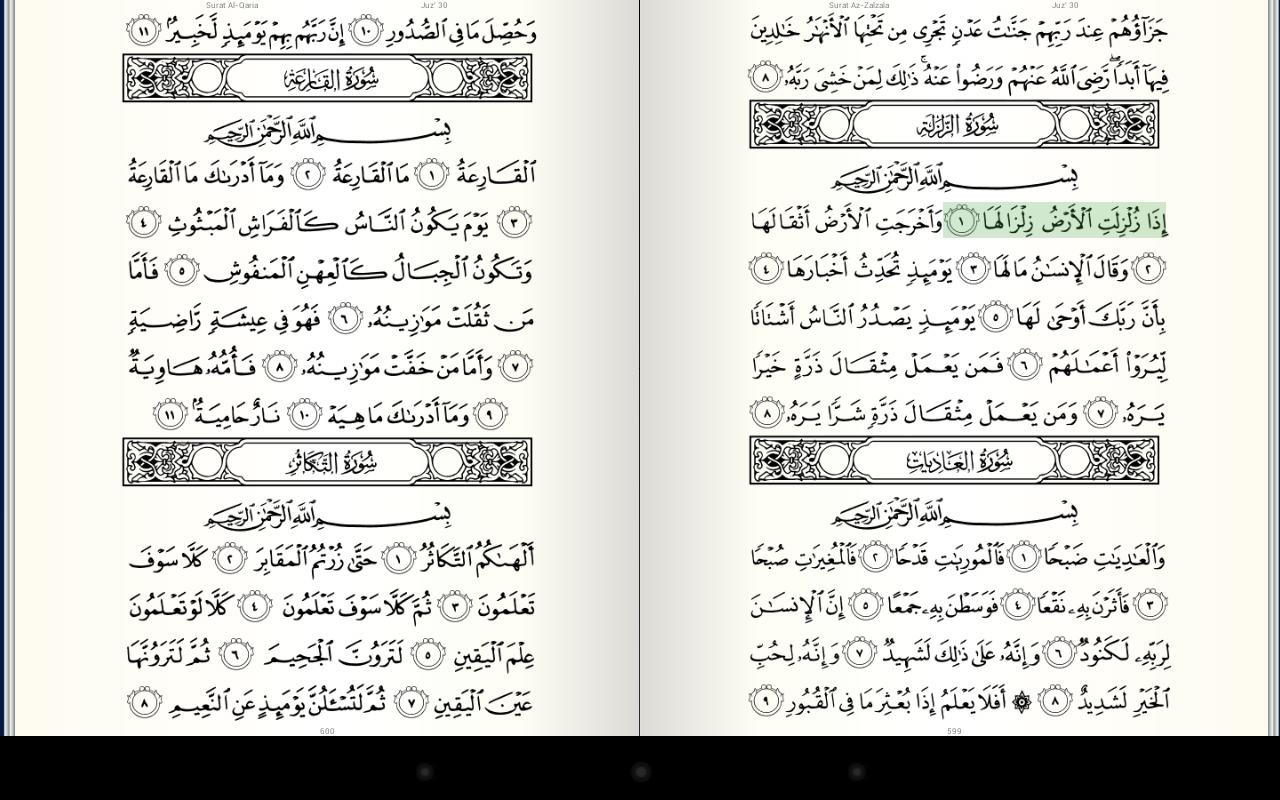 Surat Az-Zalzala Juz' 30
جَزَآؤُهُمْ عِندَ رَبِّهِمْ جَنَّٰتُ عَدْنٍ تَجْرِى مِن تَحْتِهَا ٱلْأَنْهَٰرُ خَٰلِدِينَ
فِيهَآ أَبَدًا ۖ رَّضِىَ ٱللَّهُ عَنْهُمْ وَرَضُوا۟ عَنْهُ ۚ ذَٰلِكَ لِمَنْ خَشِىَ رَبَّهُۥ ٨
سُورَةُ الزَّلْزَلَةِ
بِسْمِ ٱللَّهِ ٱلرَّحْمَٰنِ ٱلرَّحِيمِ
إِذَا زُلْزِلَتِ ٱلْأَرْضُ زِلْزَالَهَا ١ وَأَخْرَجَتِ ٱلْأَرْضُ أَثْقَالَهَا
٢ وَقَالَ ٱلْإِنسَٰنُ مَا لَهَا ٣ يَوْمَئِذٍ تُحَدِّثُ أَخْبَارَهَا ٤
بِأَنَّ رَبَّكَ أَوْحَىٰ لَهَا ٥ يَوْمَئِذٍ يَصْدُرُ ٱلنَّاسُ أَشْتَاتًا
لِّيُرَوْا۟ أَعْمَٰلَهُمْ ٦ فَمَن يَعْمَلْ مِثْقَالَ ذَرَّةٍ خَيْرًا
يَرَهُۥ ٧ وَمَن يَعْمَلْ مِثْقَالَ ذَرَّةٍ شَرًّا يَرَهُۥ ٨
سُورَةُ العَادِيَاتِ
بِسْمِ ٱللَّهِ ٱلرَّحْمَٰنِ ٱلرَّحِيمِ
وَٱلْعَٰدِيَٰتِ ضَبْحًا ١ فَٱلْمُورِيَٰتِ قَدْحًا ٢ فَٱلْمُغِيرَٰتِ صُبْحًا
٣ فَأَثَرْنَ بِهِۦ نَقْعًا ٤ فَوَسَطْنَ بِهِۦ جَمْعًا ٥ إِنَّ ٱلْإِنسَٰنَ
لِرَبِّهِۦ لَكَنُودٌ ٦ وَإِنَّهُۥ عَلَىٰ ذَٰلِكَ لَشَهِيدٌ ٧ وَإِنَّهُۥ لِحُبِّ
ٱلْخَيْرِ لَشَدِيدٌ ٨ ۞ أَفَلَا يَعْلَمُ إِذَا بُعْثِرَ مَا فِى ٱلْقُبُورِ ٩
599
Surat Al-Qaria Juz' 30
وَحُصِّلَ مَا فِى ٱلصُّدُورِ ١٠ إِنَّ رَبَّهُم بِهِمْ يَوْمَئِذٍ لَّخَبِيرٌۢ ١١
سُورَةُ القَارِعَةِ
بِسْمِ ٱللَّهِ ٱلرَّحْمَٰنِ ٱلرَّحِيمِ
ٱلْقَارِعَةُ ١ مَا ٱلْقَارِعَةُ ٢ وَمَآ أَدْرَىٰكَ مَا ٱلْقَارِعَةُ
٣ يَوْمَ يَكُونُ ٱلنَّاسُ كَٱلْفَرَاشِ ٱلْمَبْثُوثِ ٤
وَتَكُونُ ٱلْجِبَالُ كَٱلْعِهْنِ ٱلْمَنفُوشِ ٥ فَأَمَّا
مَن ثَقُلَتْ مَوَٰزِينُهُۥ ٦ فَهُوَ فِى عِيشَةٍ رَّاضِيَةٍ
٧ وَأَمَّا مَنْ خَفَّتْ مَوَٰزِينُهُۥ ٨ فَأُمُّهُۥ هَاوِيَةٌ
٩ وَمَآ أَدْرَىٰكَ مَا هِيَهْ ١٠ نَارٌ حَامِيَةٌۢ ١١
سُورَةُ التَّكَاثُرِ
بِسْمِ ٱللَّهِ ٱلرَّحْمَٰنِ ٱلرَّحِيمِ
أَلْهَىٰكُمُ ٱلتَّكَاثُرُ ١ حَتَّىٰ زُرْتُمُ ٱلْمَقَابِرَ ٢ كَلَّا سَوْفَ
تَعْلَمُونَ ٣ ثُمَّ كَلَّا سَوْفَ تَعْلَمُونَ ٤ كَلَّا لَوْ تَعْلَمُونَ
عِلْمَ ٱلْيَقِينِ ٥ لَتَرَوُنَّ ٱلْجَحِيمَ ٦ ثُمَّ لَتَرَوُنَّهَا
عَيْنَ ٱلْيَقِينِ ٧ ثُمَّ لَتُسْـَٔلُنَّ يَوْمَئِذٍ عَنِ ٱلنَّعِيمِ ٨
600